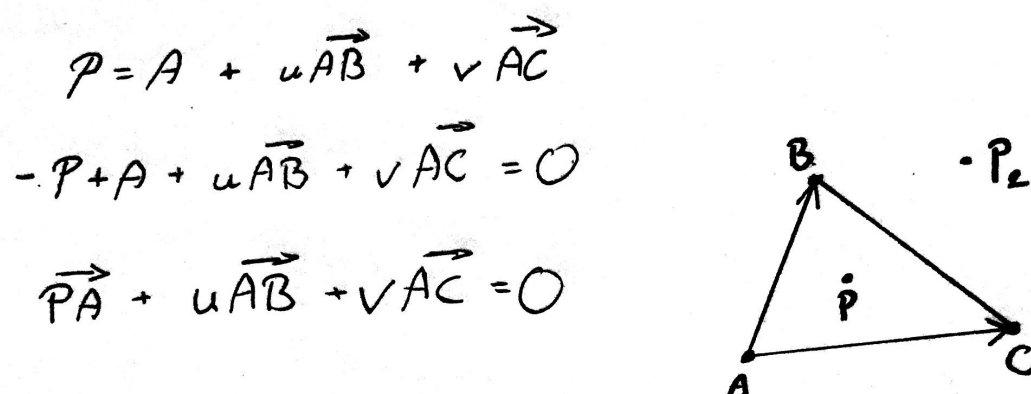 P = A + u\overrightarrow{AB} + v\overrightarrow{AC}
-P + A + u\overrightarrow{AB} + v\overrightarrow{AC} = 0
\overrightarrow{PA} + u\overrightarrow{AB} + v\overrightarrow{AC} = 0
B
P₂
P
A
C